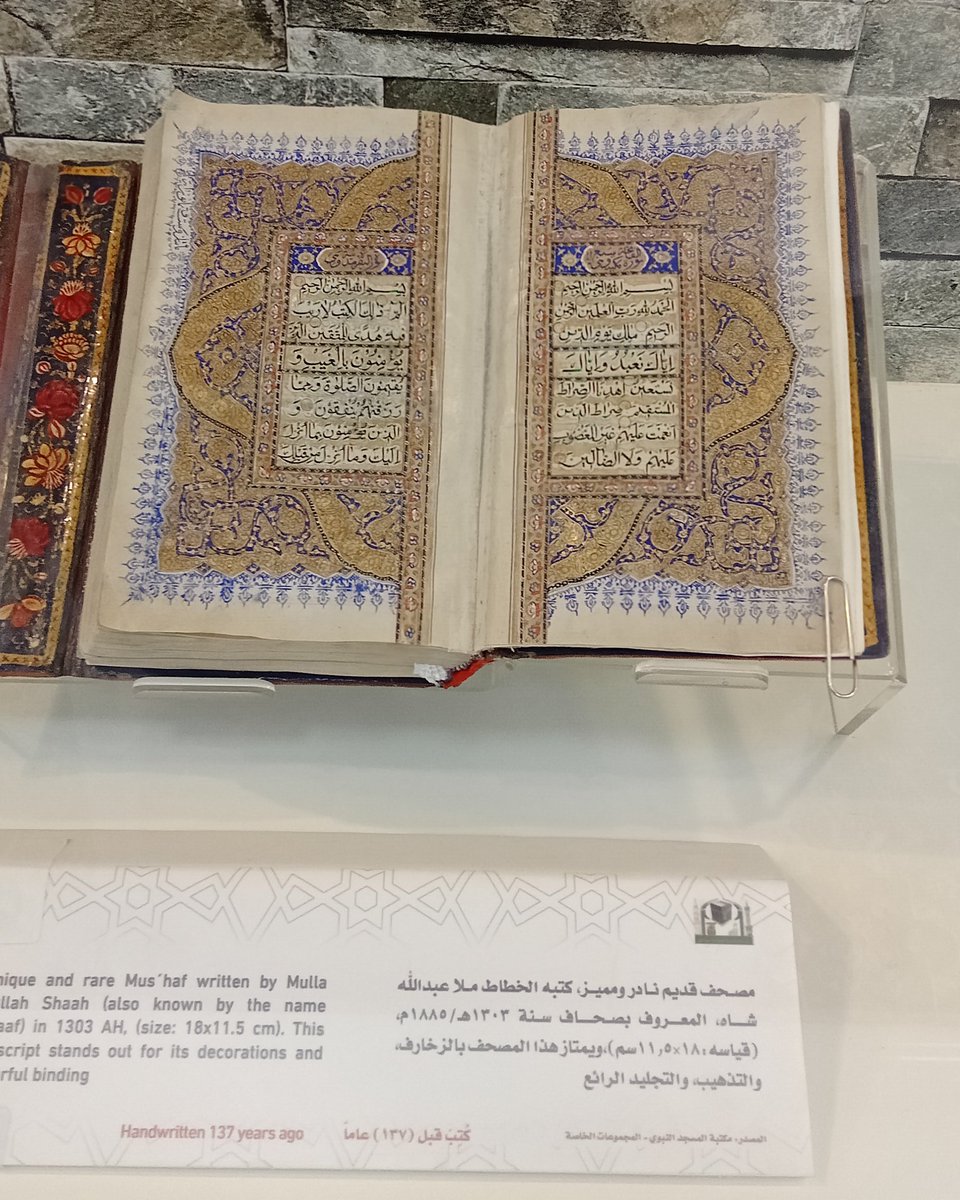 بسم الله الرحمن الرحيم
الحمد لله رب العلمين الرحمن
الرحيم ملك يوم الدين
إياك نعبد وإياك
نستعين اهدنا الصراط
المستقيم صراط الذين
انعمت عليهم غير المغضوب
عليهم ولا الضالين
بسم الله الرحمن الرحيم
الم ذلك الكتب لا ريب
فيه هدى للمتقين الذين
يؤمنون بالغيب و
يقيمون الصلوة ومما
رزقنهم ينفقون و
الذين يؤمنون بما انزل
اليك وما انزل من قبلك
مصحف قديم نادر ومميز، كتبه الخطاط ملا عبدالله
شاه، المعروف بصحاف سنة ١٣٠٣هـ/١٨٨٥م،
(قياسه: ١٨×١١,٥سم)، ويمتاز هذا المصحف بالزخارف،
والتذهيب، والتجليد الرائع
nique and rare Mus´haf written by Mulla
llah Shaah (also known by the name
aaf) in 1303 AH, (size: 18x11.5 cm). This
script stands out for its decorations and
rful binding
Handwritten 137 years ago
كُتِبَ قبل (١٣٧) عاماً
المصدر: مكتبة المسجد النبوي - المجموعات الخاصة